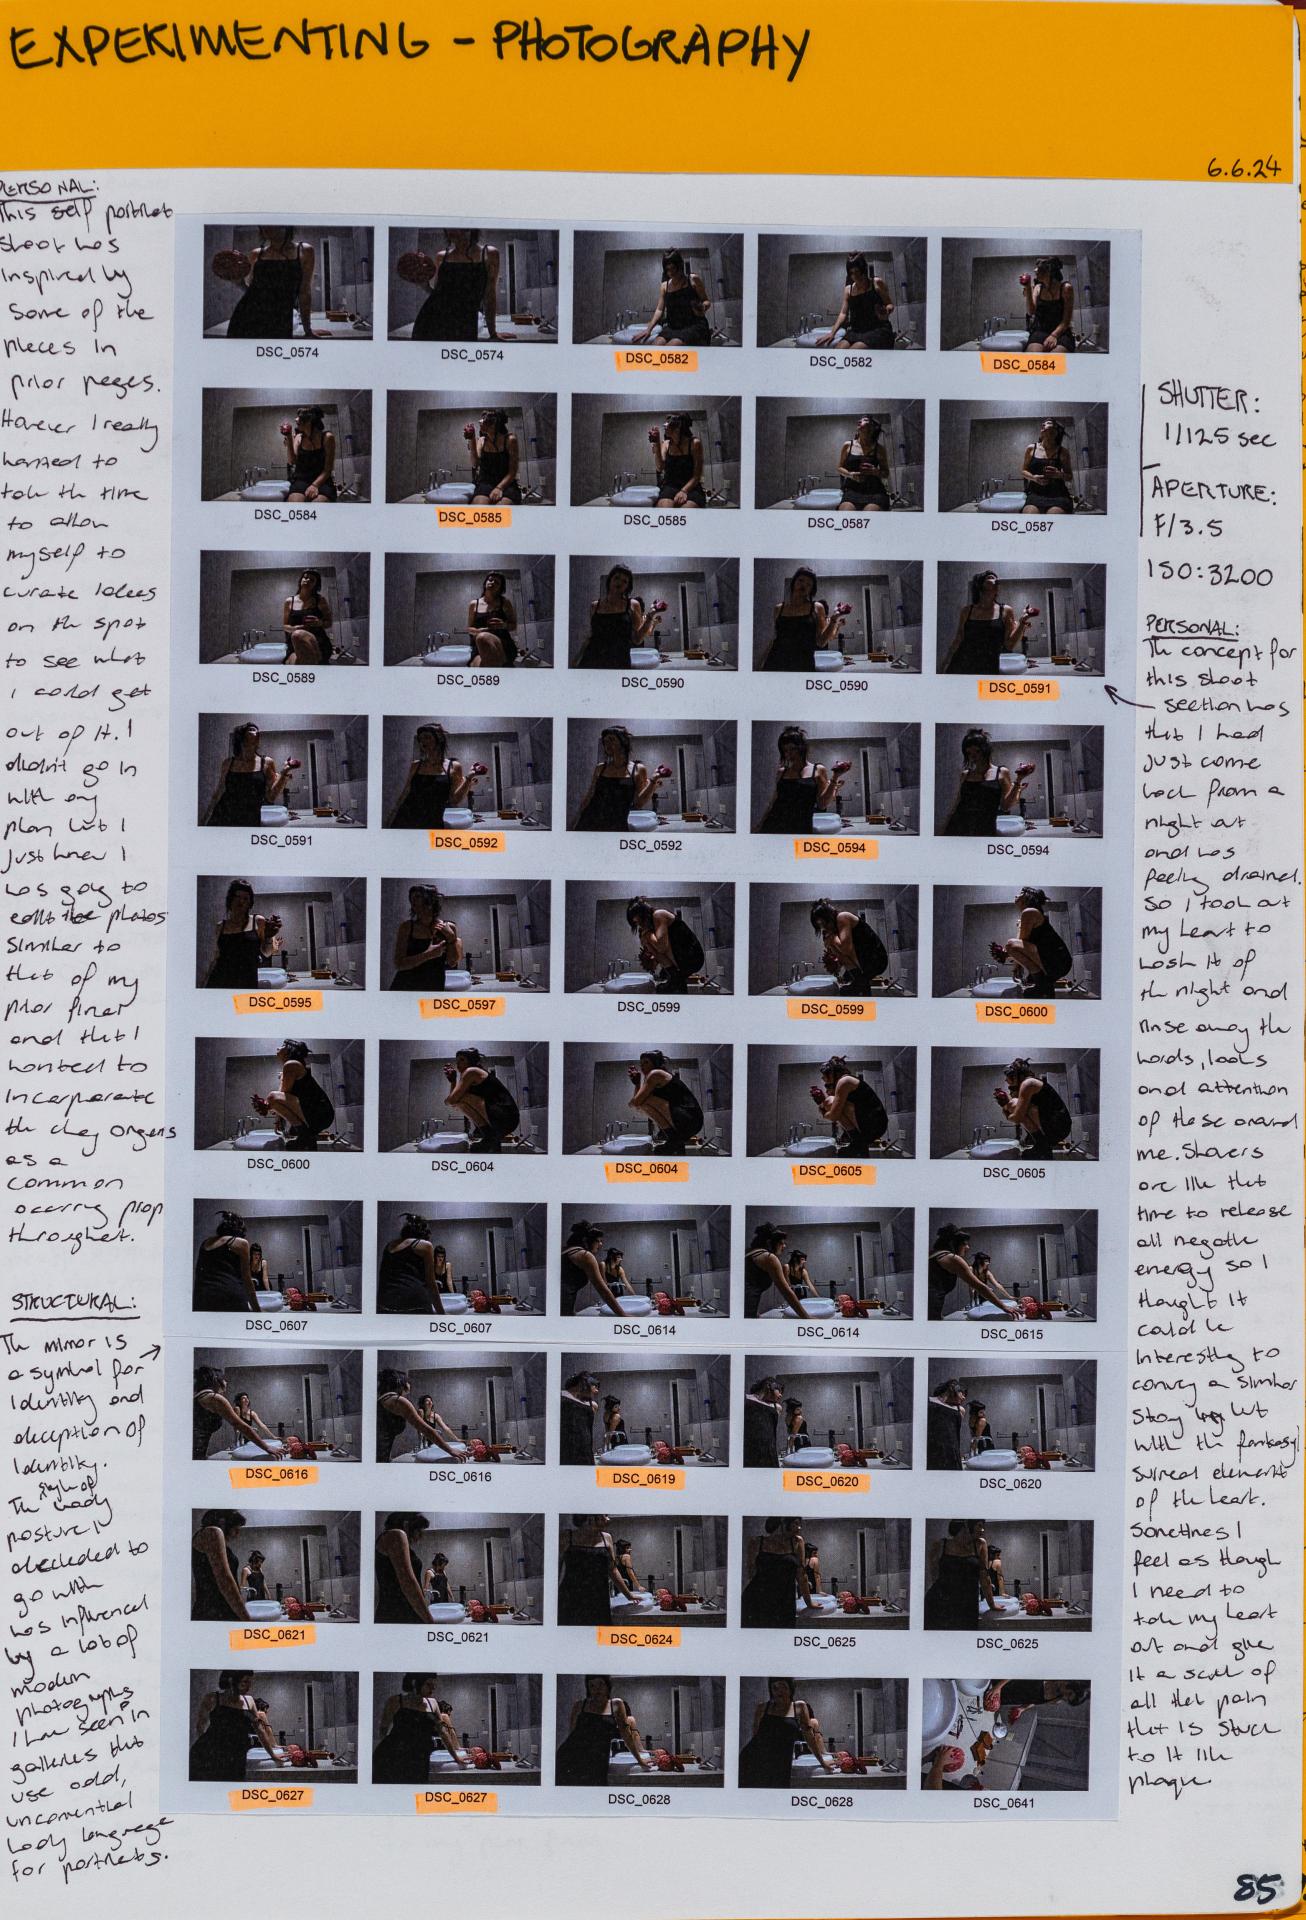 EXPERIMENTING - PHOTOGRAPHY
6.6.24
PERSONAL:
This self portrait
shoot was
inspired by
some of the
pieces in
prior pages.
However I really
wanted to
take the time
to allow
myself to
curate ideas
on the spot
to see what
I could get
out of it. I
didn't go in
with any
plan but I
just knew I
was going to
edit the photos
similar to
that of my
prior final
and that I
wanted to
incorporate
the clay organs
as a
common
occurring prop
throughout.
STRUCTURAL:
The mirror is
a symbol for
identity and
deception of
identity.
The style of body
posture I
decided to
go with
was influenced
by a lot of
modern
photographs
I have seen in
galleries that
use odd,
unconventional
body language
for portraits.
DSC_0574
DSC_0574
DSC_0582
DSC_0582
DSC_0584
DSC_0584
DSC_0585
DSC_0585
DSC_0587
DSC_0587
DSC_0589
DSC_0589
DSC_0590
DSC_0590
DSC_0591
DSC_0591
DSC_0592
DSC_0592
DSC_0594
DSC_0594
DSC_0595
DSC_0597
DSC_0599
DSC_0599
DSC_0600
DSC_0600
DSC_0604
DSC_0604
DSC_0605
DSC_0605
DSC_0607
DSC_0607
DSC_0614
DSC_0614
DSC_0615
DSC_0616
DSC_0616
DSC_0619
DSC_0620
DSC_0620
DSC_0621
DSC_0621
DSC_0624
DSC_0625
DSC_0625
DSC_0627
DSC_0627
DSC_0628
DSC_0628
DSC_0641
SHUTTER:
1/125 sec
APERTURE:
F/3.5
ISO:3200
PERSONAL:
The concept for
this shoot
section was
that I had
just come
back from a
night out
and was
feeling drained.
So I took out
my heart to
wash it of
the night and
rinse away the
words, looks
and attention
of those around
me. Showers
are like that
time to release
all negative
energy so I
thought it
could be
interesting to
convey a similar
story but
with the fantasy/
surreal element
of the heart.
Sometimes I
feel as though
I need to
take my heart
out and give
it a scrub of
all that pain
that is stuck
to it like
plaque.
85